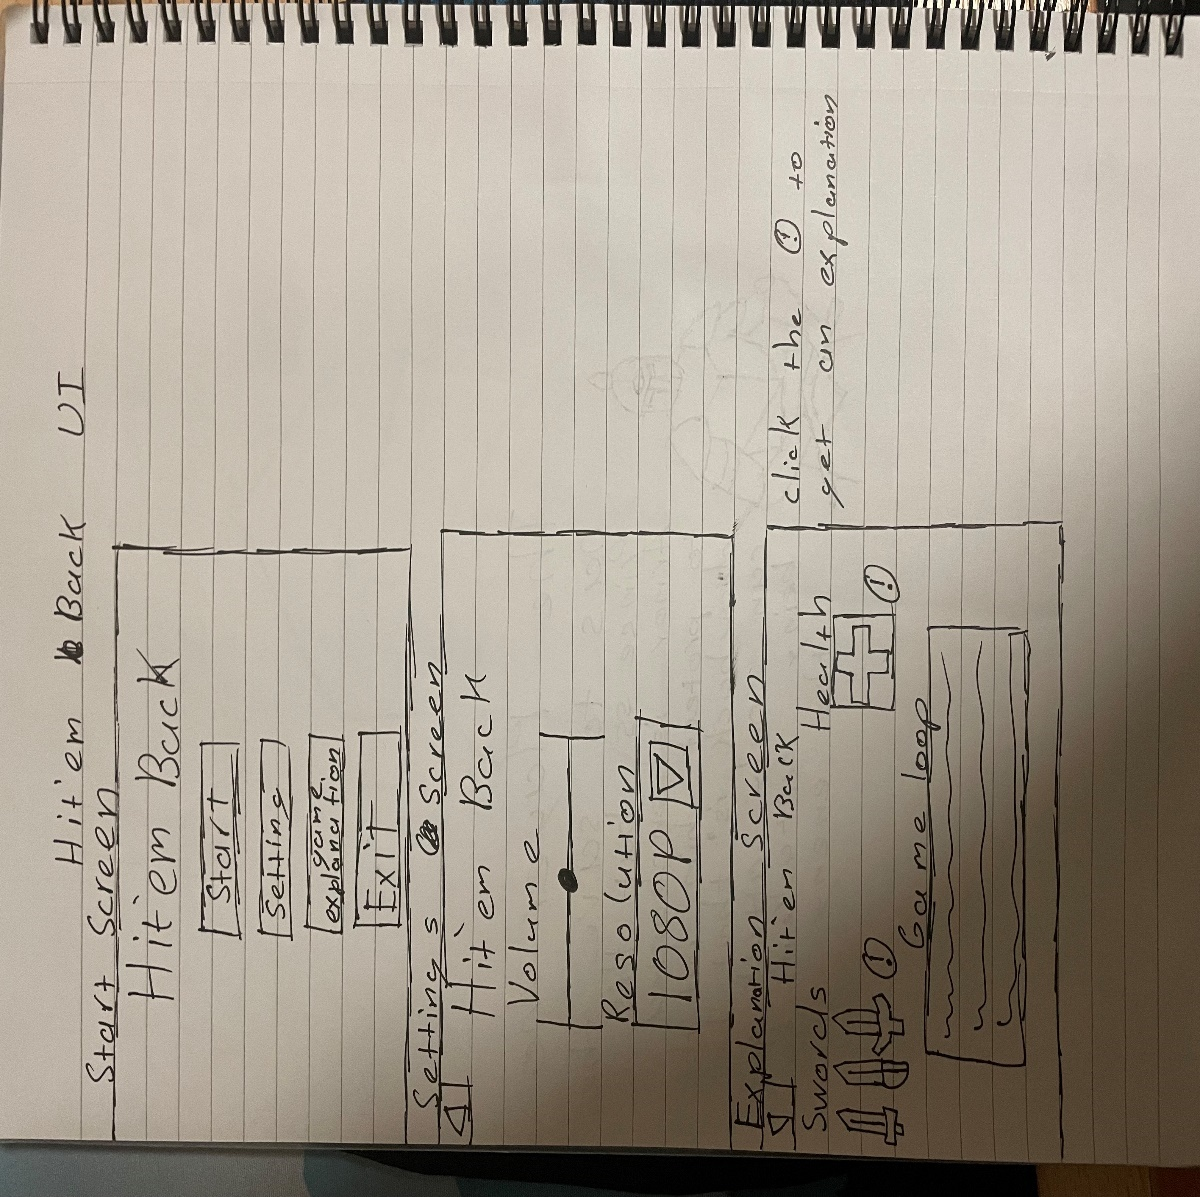 Hitem Back UI
Start Screen
Hitem Back
Start
Setting
game
explanation
Exit
Settings Screen
Hitem Back
Volume
Resolution
1080P
Explanation Screen
Hitem Back
Swords
Health
! !
Game loop
click the ! to
get an explanation